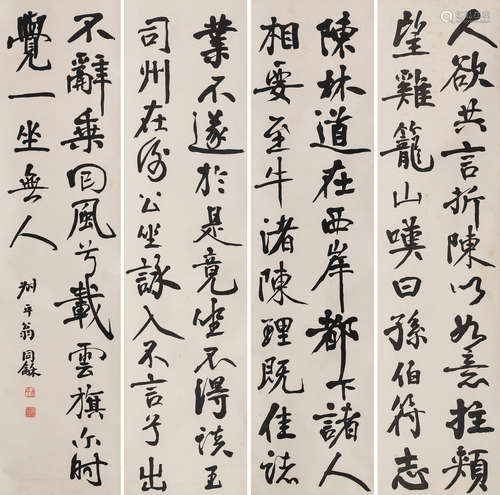 人欲共言折陳以如意拄頰
望雞籠山嘆曰孫伯符志
陳林道在西岸都下諸人
相要至牛渚陳理既佳諸
業不遂於是竟坐不得談王
司州在謝公坐詠入不言兮出
不辭乘回風兮載雲旗尔時
覺一坐無人
叔平翁同龢